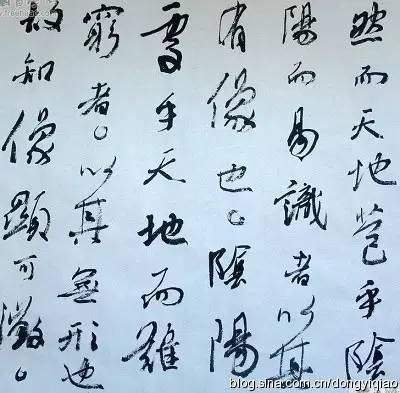 然而天地苞乎陰
陽而易識者以其
有像也。陰陽
處乎天地而難
窮者。以其無形也
故知像顯可徵。
blog.sina.com.cn/dongyiqiao